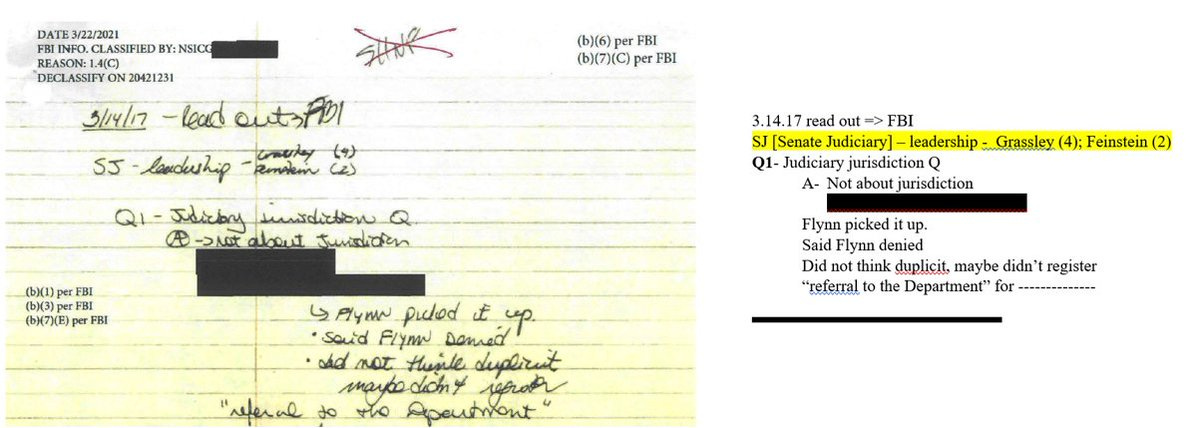 DATE 3/22/2021
FBI INFO. CLASSIFIED BY: NSICG
REASON: 1.4(C)
DECLASSIFY ON 20421231
(b)(6) per FBI
(b)(7)(C) per FBI
3/14/17 - Read out → FBI
SJ - leadership - Grassley (4)
Feinstein (2)
Q1 - Judiciary jurisdiction Q
A → not about jurisdiction
(b)(1) per FBI
(b)(3) per FBI
(b)(7)(E) per FBI
↳ Flynn picked it up.
• Said Flynn Denied
• did not think duplicit
maybe didn't register
"referral to the Department"
3.14.17 read out => FBI
SJ [Senate Judiciary] – leadership - Grassley (4); Feinstein (2)
Q1- Judiciary jurisdiction Q
A- Not about jurisdiction
Flynn picked it up.
Said Flynn denied
Did not think duplicit, maybe didn't register
"referral to the Department" for --------------